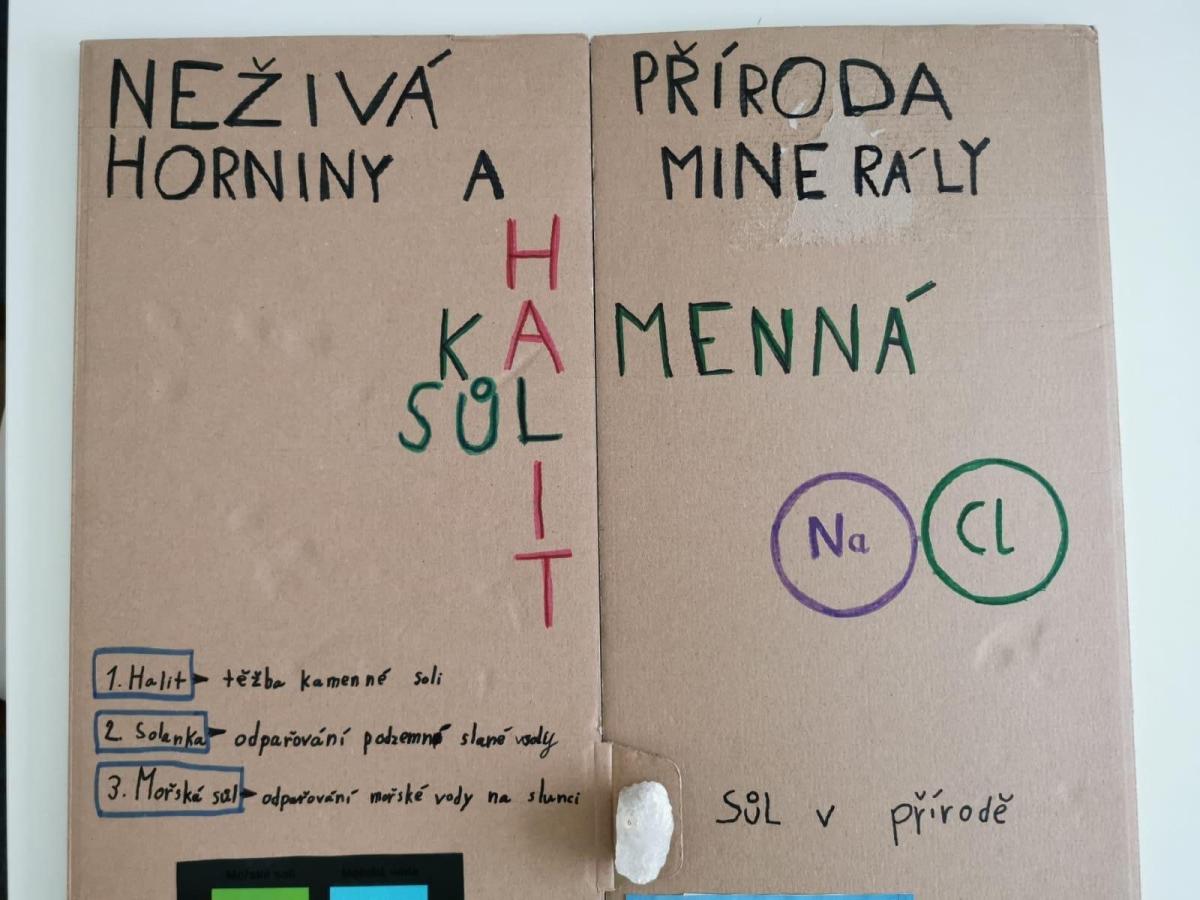 NEŽIVÁ PŘÍRODA
HORNINY A MINERÁLY
HALIT
KAMENNÁ
SŮL
Na Cl
1. Halit těžba kamenné soli
2. Solanka odpařování podzemné slané vody
3. Mořská sůl odpařování mořské vody na slunci
SůL v přírodě